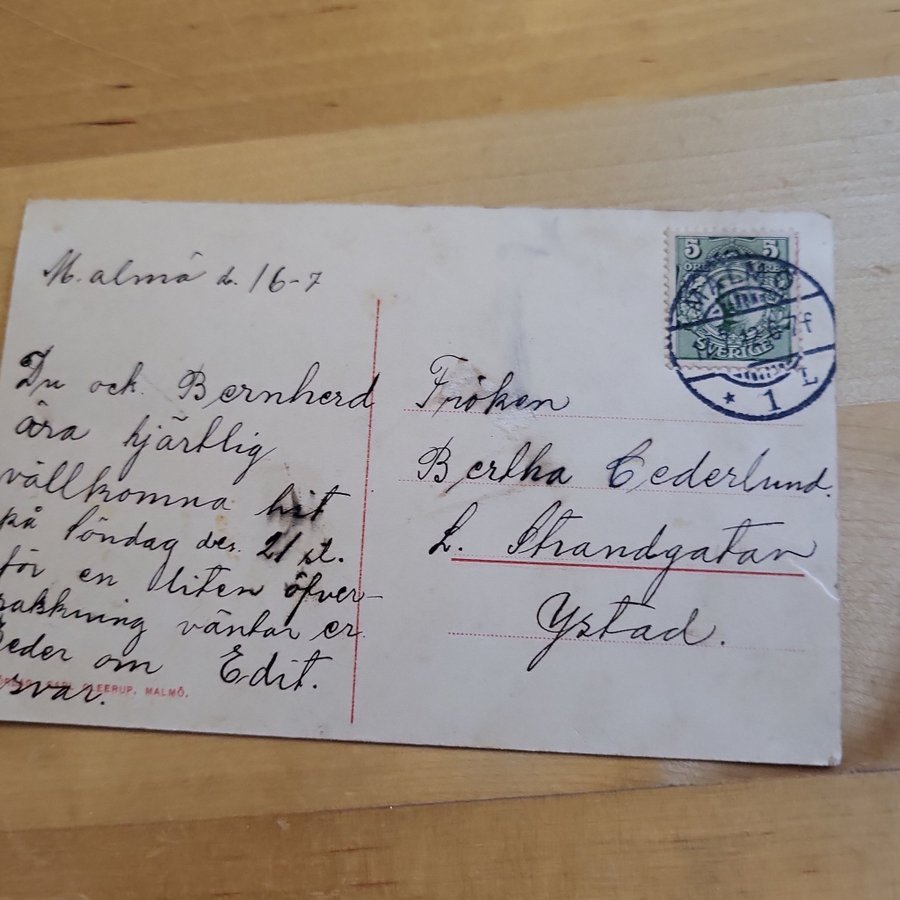 Malmö d. 16-7
Du och Bernherd
ära hjärtlig
vällkomna hit
på Söndag den 21 st.
för en liten öfver-
rakkning väntar er
beder om Edit.
svar.
CARL GLEERUP, MALMÖ.
5 5
ÖRE ÖRE
SVERIGE
MALMÖ
12
7f
* 1 L
Fröken
Bertha Cederlund.
L. Strandgatan
Ystad.